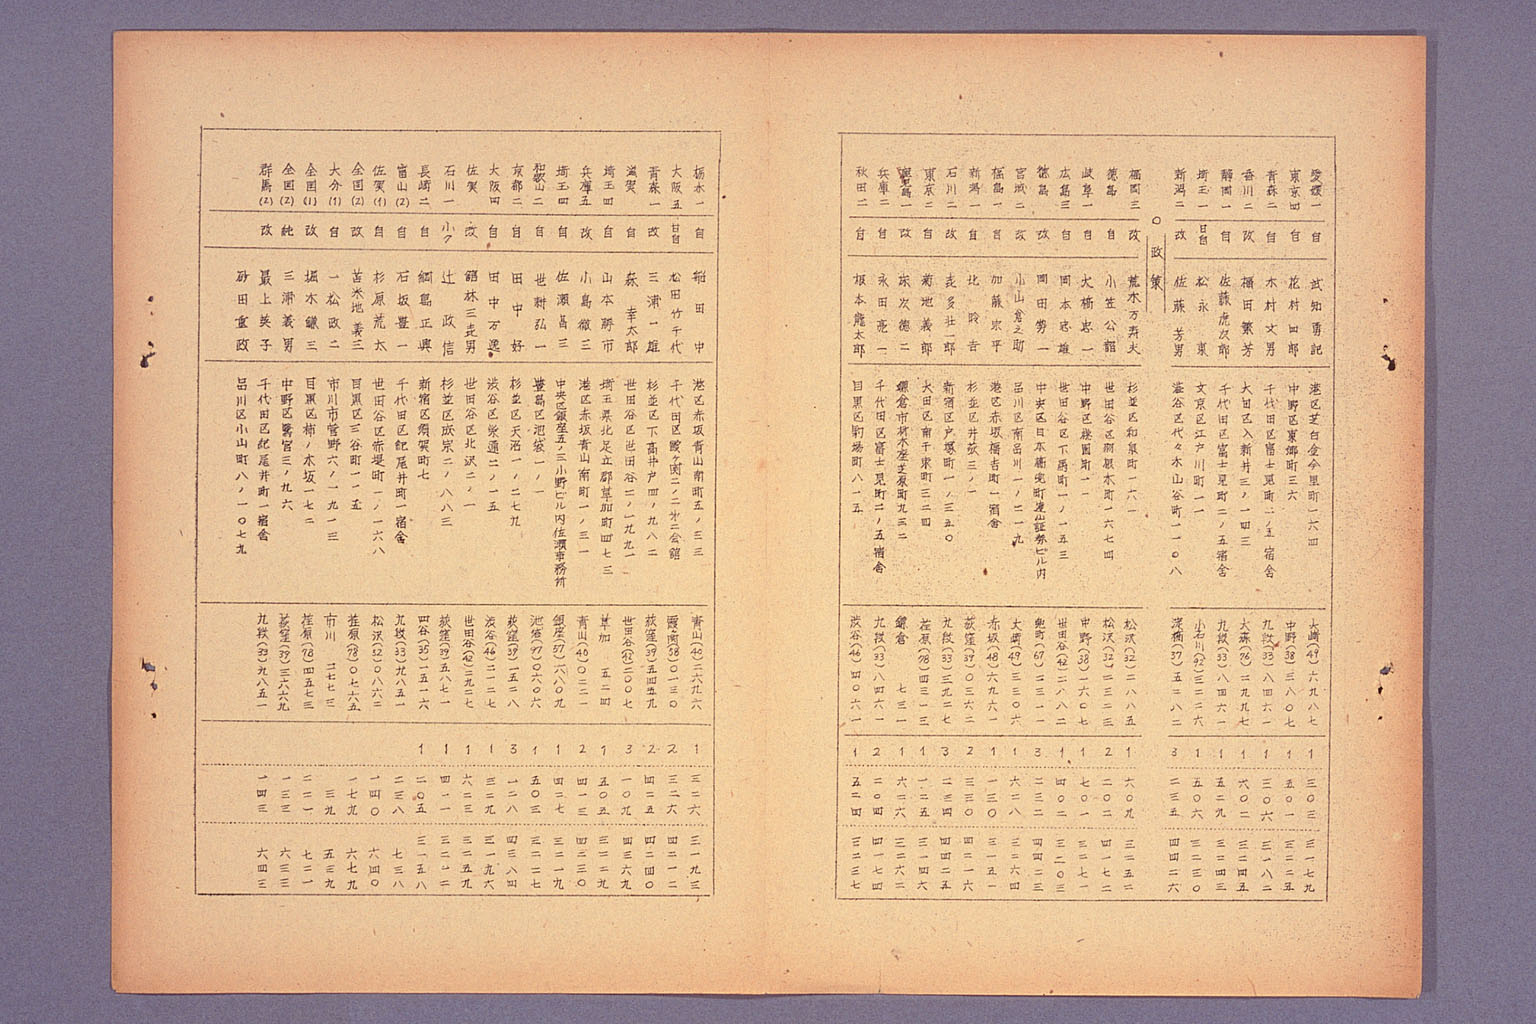 愛媛一 自 武知勇記 港区芝白金今里町一六四 大崎(49)六九八七 1 三〇三 三一七九
東京四 自 花村四郎 中野区東郷町三六 中野(38)三八〇七 1 五〇一 三二二五
青森二 自 木村文男 千代田区富士見町二ノ五宿舎 九段(33)八四六一 1 三〇六 三一八二
香川二 改 福田繁芳 大田区入新井三ノ一四三 大森(76)二九九七 1 六〇二 三二四五
静岡一 自 佐藤虎次郎 千代田区富士見町二ノ五宿舎 九段(33)八四六一 1 五二九 三二四三
埼玉一 日自 松永東 文京区江戸川町一一 小石川(92)三二二六 1 五〇六 三二三〇
新潟二 改 佐藤芳男 渋谷区代々木山谷町一一〇八 淀橋(37)五二八二 3 二三五 四四二六
〇政策
福岡三 改 荒木万寿夫 杉並区和泉町一六一 松沢(32)二八八五 1 六〇九 三二五二
徳島 自 小笠公韶 世田谷区羽根木町一六七四 松沢(32)二三二三 2 二〇二 四一七二
岐阜一 自 大橋忠一 中野区桜園町一一 中野(38)一六〇七 1 七〇一 三二七一
広島三 自 岡本忠雄 世田谷区下馬町一ノ一五三 世田谷(42)二八八二 1 四〇二 三二〇三
徳島 改 岡田勢一 中央区日本橋兜町遠山証券ビル内 兜町(67)二三一一 3 二三二 四四二三
宮城二 改 小山倉之助 品川区南品川一ノ二一九 大崎(49)三三〇六 1 六二八 三二六四
福島一 自 加藤宗平 港区赤坂福吉町一宿舎 赤坂(48)六九六一 1 一三〇 三一五一
新潟一 自 北昤吉 杉並区井荻三ノ一 荻窪(39)〇三六二 2 三三〇 四二一六
石川二 改 喜多壮一郎 新宿区戸塚町一ノ三五〇 九段(33)三九二七 3 二三四 四四二五
東京二 自 菊地義郎 大田区南千束町三二四 荏原(78)四三一三 1 一二五 三一四六
鹿児島一 改 床次徳二 鎌倉市材木座芝原町九三二 鎌倉 七三一 1 六二六 三二六二
兵庫二 自 永田亮一 千代田区富士見町二ノ五宿舎 九段(33)八四六一 2 二〇四 四一七四
秋田二 自 根本龍太郎 目黒区駒場町八一五 渋谷(46)四〇六一 1 五二四 三二三七
栃木一 自 船田中 港区赤坂青山南町五ノ三三 青山(40)二六九六 1 三二六 三一九三
大阪五 日自 松田竹千代 千代田区霞ヶ関二ノ二第二会館 霞ヶ関(58)〇一三〇 2 三二六 四二一二
青森一 改 三浦一雄 杉並区下高井戸四ノ九八二 荻窪(39)五四五九 2 四二五 四二四〇
滋賀 自 森幸太郎 世田谷区世田谷二ノ一九九一 世田谷(42)二〇〇七 3 一〇九 四三六九
埼玉四 自 山本勝市 埼玉県北足立郡草加町四七三 草加 五二四 1 五〇五 三二二九
兵庫五 改 小島徹三 港区赤坂青山南町一ノ三一 青山(40)〇二二一 2 四一三 四二三〇
埼玉四 自 佐瀬昌三 中央区銀座五ノ三小野ビル内佐瀬事務所 銀座(57)六八〇九 1 四二七 三二一九
和歌山二 自 世耕弘一 豊島区池袋一ノ一 池袋(97)〇六〇六 1 五〇三 三二二七
京都二 自 田中好 杉並区天沼一ノ二七九 荻窪(39)一五二八 3 一二八 四三八四
大阪四 自 田中万逸 渋谷区栄通二ノ一五 渋谷(46)二一二七 1 三二九 三一九六
佐賀 改 館林三喜男 世田谷区北沢二ノ一 世田谷(42)二九二七 1 六二三 三二五九
石川一 小ク 辻政信 杉並区成宗二ノ八八三 荻窪(39)五八七一 1 四一一 三二一二
長崎二 自 綱島正興 新宿区須賀町七 四谷(35)一五一六 1 二〇五 三一五八
富山(2) 自 石坂豊一 千代田区紀尾井町一宿舎 九段(33)九八五一 二三八 七三八
佐賀(1) 自 杉原荒太 世田谷区赤堤町一ノ一六八 松沢(32)〇八六二 一四〇 六四〇
全国(2) 改 苫米地義三 目黒区三谷町一一五 荏原(78)〇七六五 一七九 六七九
大分(1) 自 一松政二 市川市菅野六ノ一九一三 市川 二七七三 三九 五三九
全国(1) 改 堀木鎌三 目黒区柿ノ木坂一七二 荏原(78)四五七三 二二一 七二一
全国(2) 純 三浦義男 中野区鷺宮三ノ九六 荻窪(39)三六六九 一三三 六三三
群馬(2) 改 最上英子 千代田区紀尾井町一宿舎 九段(33)九八五一 一四三 六四三
砂田重政 品川区小山町八ノ一〇七九